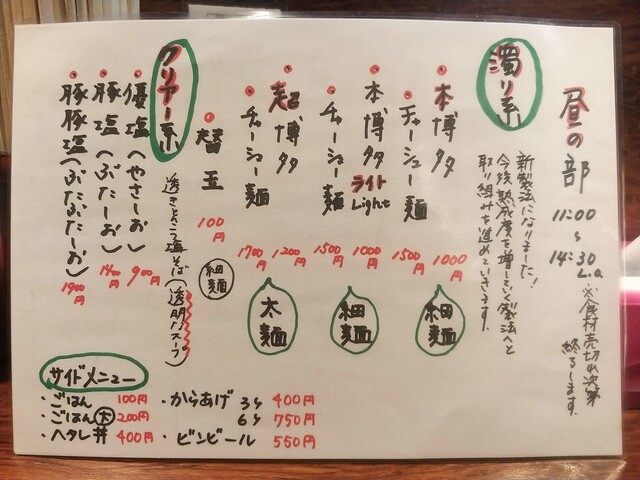 昼の部
11:00
〜
14:30
L.O.
※食材売切れ次第
終了します。
濁り系
新製法になりました!
今後熟成度を増していく製法へと
取り組みを進めていきます。
・本博多
1000円
・チャーシュー麺
1500円
細麺
・本博多ライトLight
1000円
・チャーシュー麺
1500円
細麺
・超博多
1200円
・チャーシュー麺
1700円
太麺
・替玉
100円
細麺
クリアー系
透きとんこつ塩そば(透明なスープ)
・優塩(やさしーお)
900円
・豚塩(ぶたしーお)
1400円
・豚豚塩(ぶたぶたしーお)
1900円
サイドメニュー
・ごはん 100円
・ごはん大 200円
・ヘタレ丼 400円
・からあげ 3ケ 400円
6ケ 750円
・ビンビール 550円